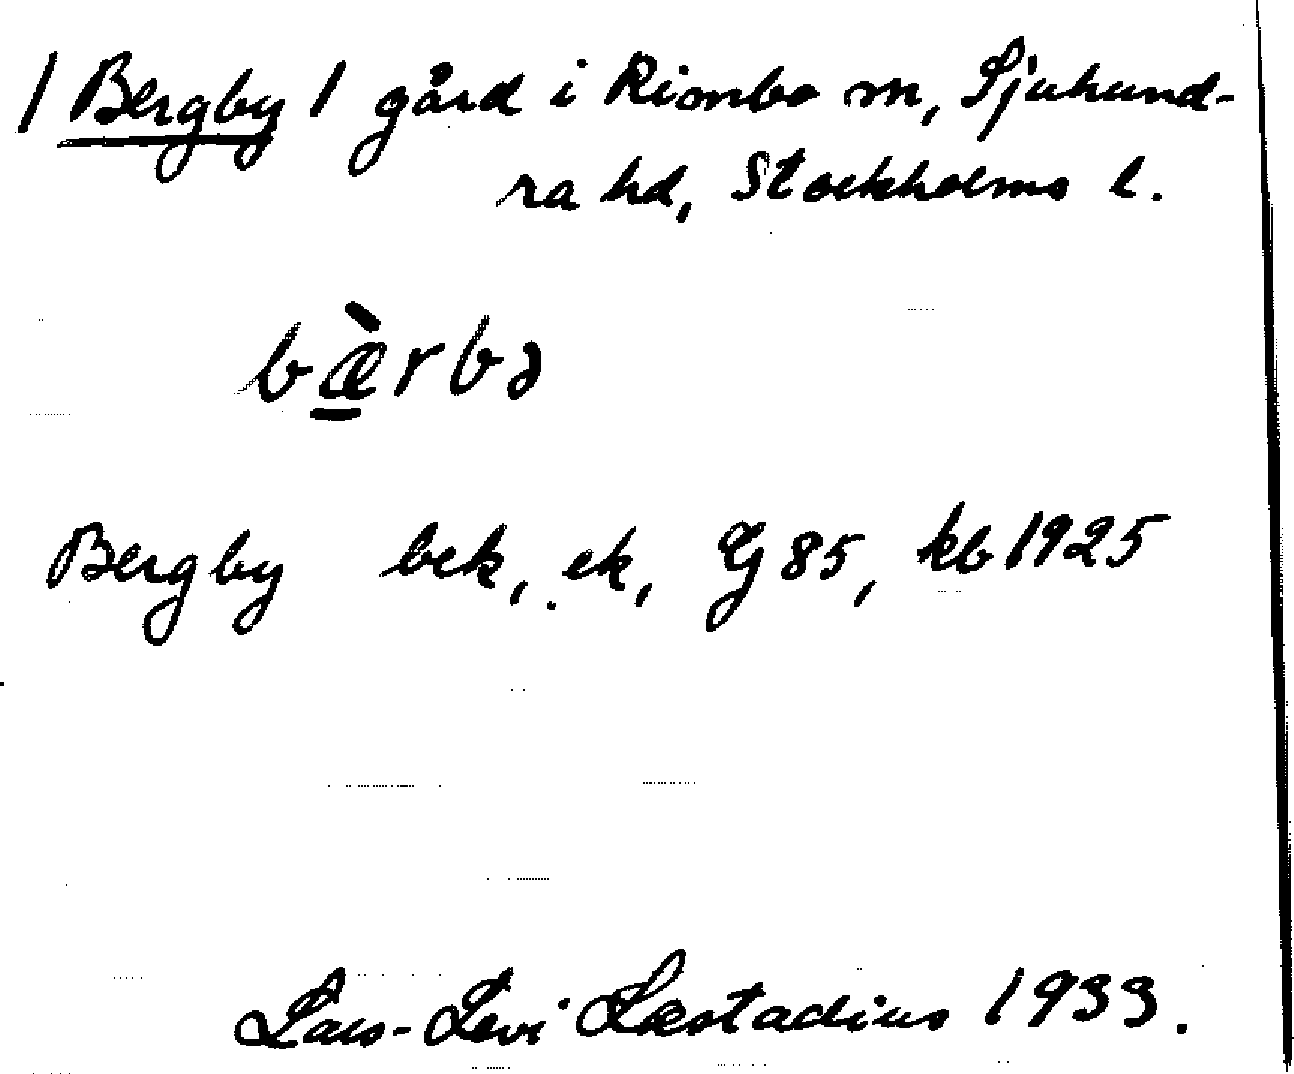 / Bergby / gård i Rimbo sn, Sjuhund-
ra hd, Stockholms l.
bæ̠̀rbə
Bergby bek, ek, Gj 85, kb 1925
Lars-Levi Læstadius 1933.